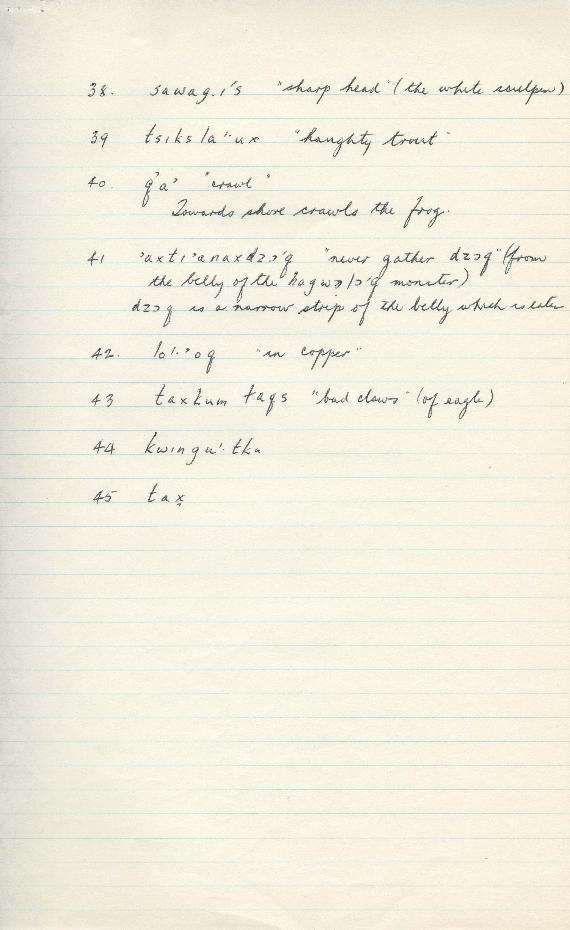 38. sawag.ı's "sharp head" (the white sculpin)
39 tsıksla'·ux "haughty trout"
40. q'a' "crawl"
Towards shore crawls the frog.
41 'axtı'anaxdzɔ'q "never gather dzɔq" (from
the belly of the hagwəlɔ'q monster)
dzɔq is a narrow strip of the belly which is eaten
42. lo'·'oq "in copper"
43 taxkum taqs "bad claws" (of eagle)
44 kwıngu'·tku
45 tax̣